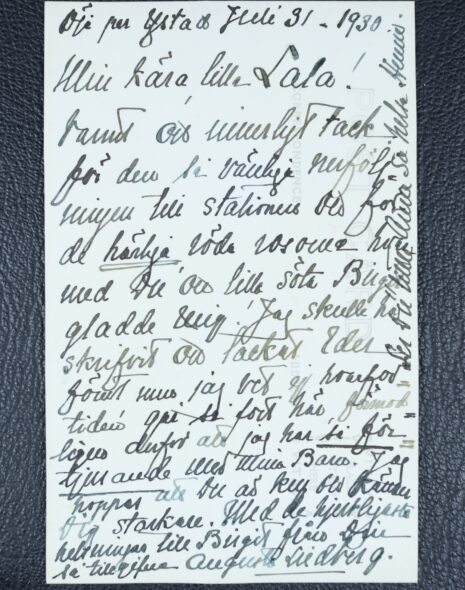 Öja per Ystad Juli 31 - 1930
Min kära lilla Lala!
Varmt och innerligt Tack
för den så vänliga
ningen till stationen och för
de härliga röda rosorna
med Du och lilla söta Birgit
gladde mig! Jag skulle ha
skrifvit och tackat Eder
förut men jag vet ej hvarför
tiden går så fort här förmod
ligen derför att jag har så för
tjusande med mina Barn. Jag
hoppas att Du är kry och känner
Dig starkare. Med de hjertligaste
helsningar till Birgit från Din
så tillgifna Augusta Lindberg.